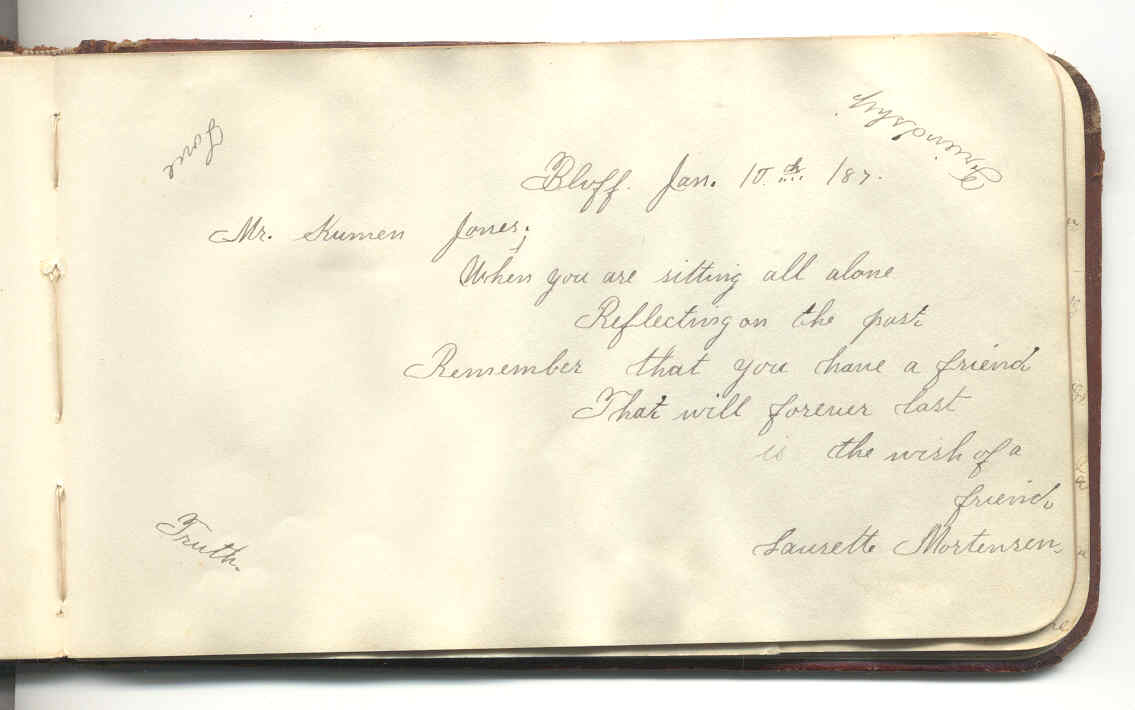 Love
Friendship.
Bluff. Jan. 10th /87.
Mr. Kumen Jones;
When you are sitting all alone
Reflecting on the past.
Remember that you have a friend
That will forever last
is the wish of a
friend.
Laurette Mortensen.
Truth.